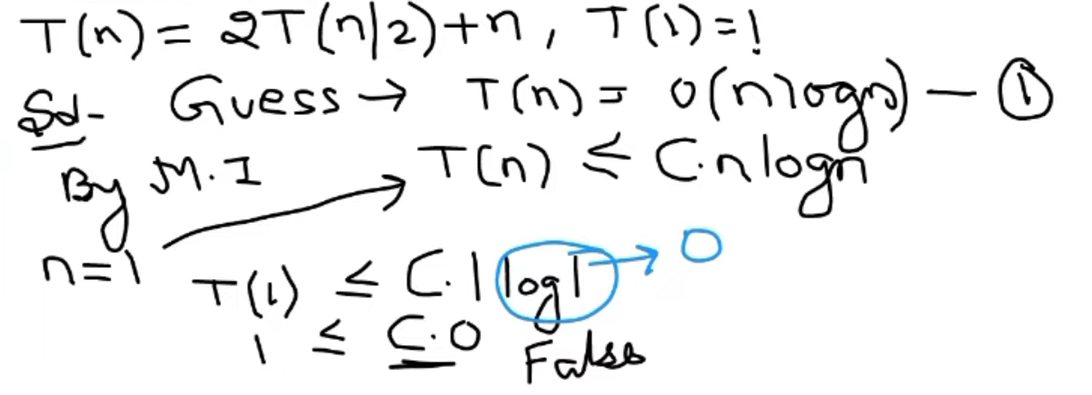 T(n) = 2T(n/2)+n, T(1)=!
Sol- Guess → T(n) = O(nlogn) — ①
By M.I → T(n) ≤ C.nlogn
n=1
T(1) ≤ C.1 log1 → 0
1 ≤ C.0 False